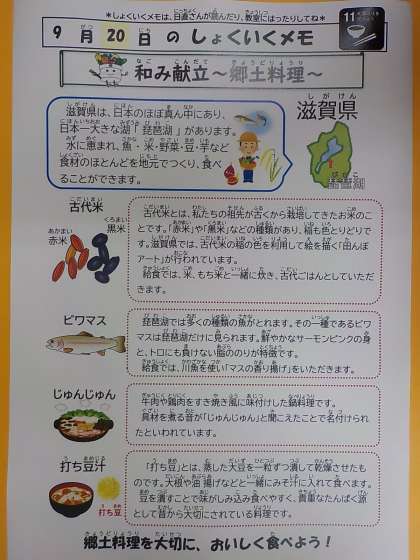 ＊しょくいくメモは、日直さんが読んだり、教室にはったりしてね＊
9月20日のしょくいくメモ
11
和み献立～郷土料理～
滋賀県は、日本のほぼ真ん中にあり、
日本一大きな湖「琵琶湖」があります。
水に恵まれ、魚・米・野菜・豆・芋など
食材のほとんどを地元でつくり、食べ
ることができます。
滋賀県
琵琶湖
古代米
赤米
黒米
古代米とは、私たちの祖先が古くから栽培してきたお米のこ
とです。「赤米」や「黒米」などの種類があり、稲も色とりどりで
す。滋賀県では、古代米の稲の色を利用して絵を描く「田んぼ
アート」が行われています。
給食では、米、もち米と一緒に炊き、古代ごはんとしていただ
きます。
ビワマス
琵琶湖では多くの種類の魚がとれます。その一種であるビワ
マスは琵琶湖だけに見られます。鮮やかなサーモンピンクの身
と、トロにも負けない脂ののりが特徴です。
給食では、川魚を使い「マスの香り揚げ」をいただきます。
じゅんじゅん
牛肉や鶏肉をすき焼き風に味付けした鍋料理です。
具材を煮る音が「じゅんじゅん」と聞こえたことで名付けられ
たといわれています。
打ち豆汁
打ち豆
「打ち豆」とは、蒸した大豆を一粒ずつ潰して乾燥させたも
のです。大根や油揚げなどと一緒にみそ汁に入れて食べます。
豆を潰すことで味がしみ込み食べやすく、貴重なたんぱく源
として昔から大切にされている料理です。
郷土料理を大切に、おいしく食べよう！